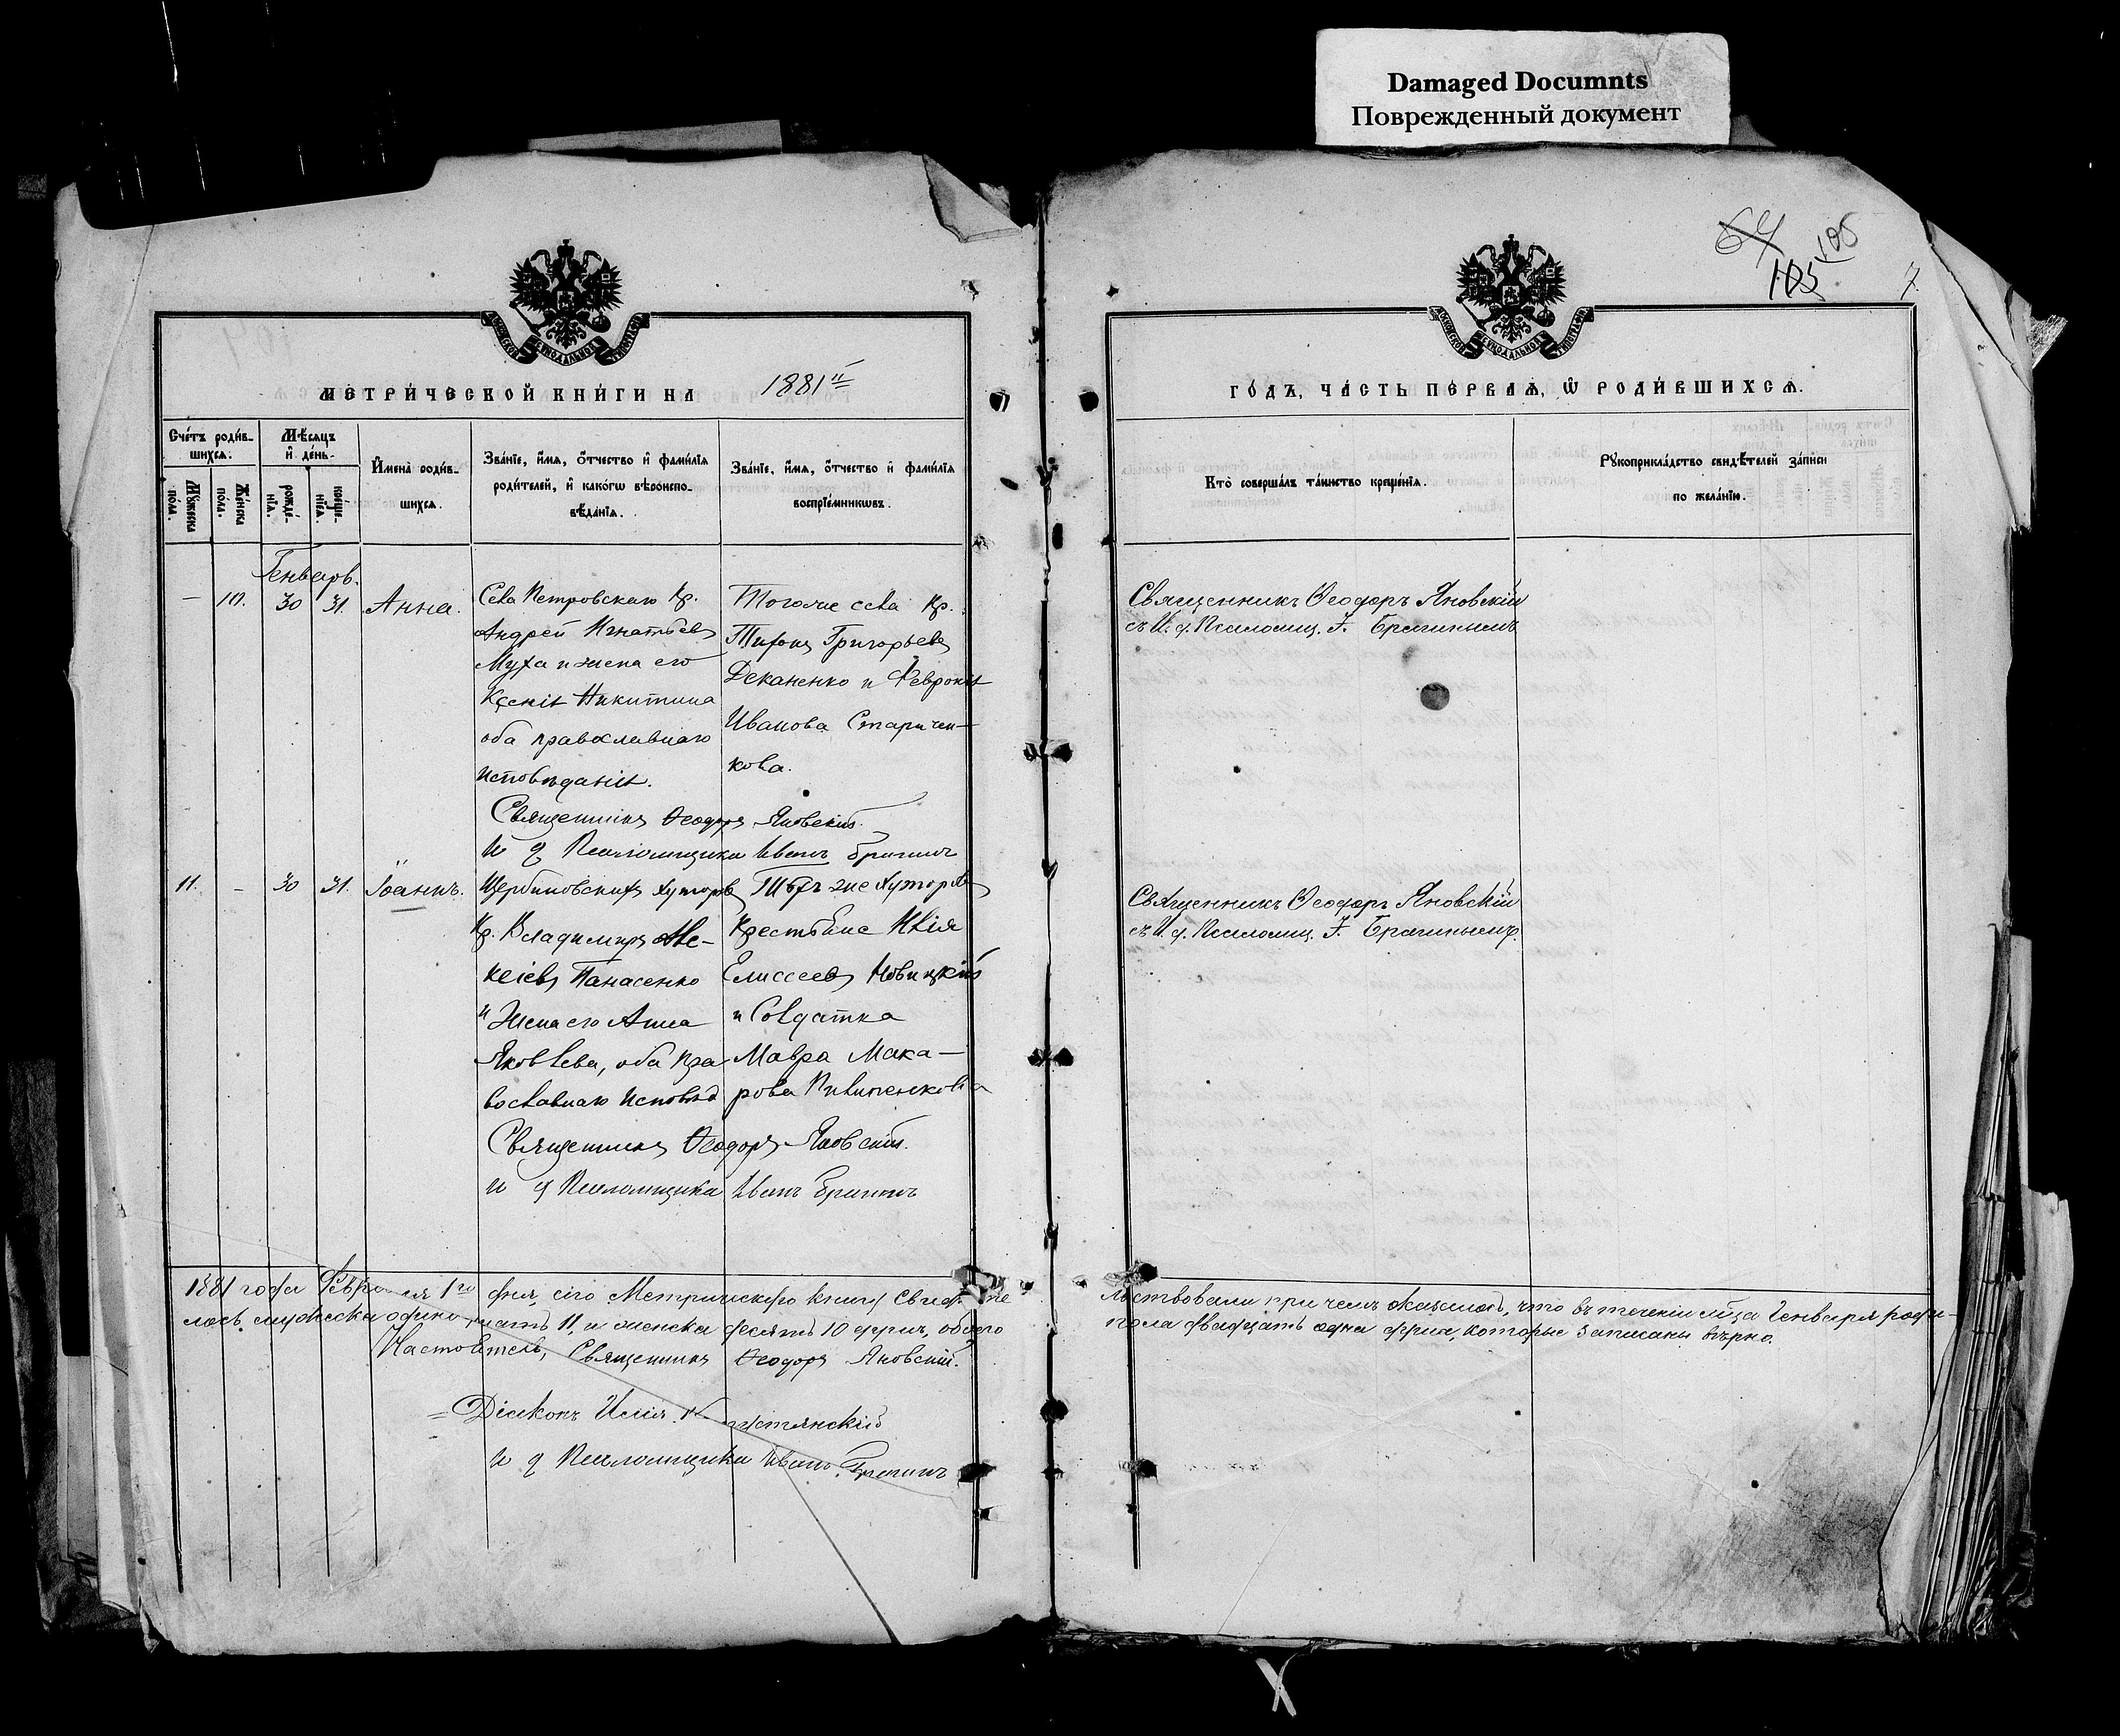 Damaged Documnts
Поврежденный документ
64
105
105
7.
МЕТРИЧЕСКОЙ КНИГИ НА 1881й
ГОДЪ, ЧАСТЬ ПЕРВАЯ, Ѡ РОДИВШИХСЯ.
Счетъ родив-
шихся.
Мѣсяцъ
и день.
Мужеска пола.
Женска пола.
рожде-
нія.
креще-
нія.
Имена родив-
шихся.
Званіе, имя, отчество и фамилія
родителей, и какогѡ вѣроиспо-
вѣданія.
Званіе, имя, отчество и фамилія
воспріемникѡвъ.
Кто совершалъ таинство крещенія.
Рукоприкладство свидѣтелей записи
по желанію.
Генварь.
– 10. 30 31. Анна.
Села Петровскаго Кр.
Андрей Игнатьевъ
Муха и жена его
Ксенія Никитина
оба православнаго
исповѣданія.
Тогоже села Кр.
Тифонъ Григорьевъ
Деканенко и Февронія
Иванова Старичен-
кова.
Священникъ Ѳеодоръ Яновскій
съ И. д. Псаломщ. І. Брагинымъ
Священникъ Ѳеодоръ Яновскій.
И д Псаломщика Иванъ Брагинъ
11. – 30 31. Іоаннъ.
Щербиновскихъ хуторовъ
Кр. Владимиръ Але-
ксіевъ Панасенко
и Жена его Анна
Яковлева, оба пра
вославнаго исповѣд
Тѣхъ же хуторовъ
Крестьяне Илія
Елиссеевъ Новицкій
и Солдатка
Мавра Мака-
рова Пилипенкова
Священникъ Ѳеодоръ Яновскій
съ И д. Псаломщ. І. Брагинымъ.
Священникъ Ѳеодоръ Яновскій.
И д Псаломщика Иванъ Брагинъ
1881 года Февраля 1го дня, сію Метрическую книгу свидѣте
льствовали при чемъ оказалось, что въ теченіи мѣсяца Генваря роди-
лось мужеска одинадцать 11, и женска десять 10 душъ, обоего
пола двадцать одна душа, которые записаны вѣрно.
Настоятель, Священникъ Ѳеодоръ Яновскій.
Діаконъ Илія
И д Псаломщика Иванъ Брагинъ
X